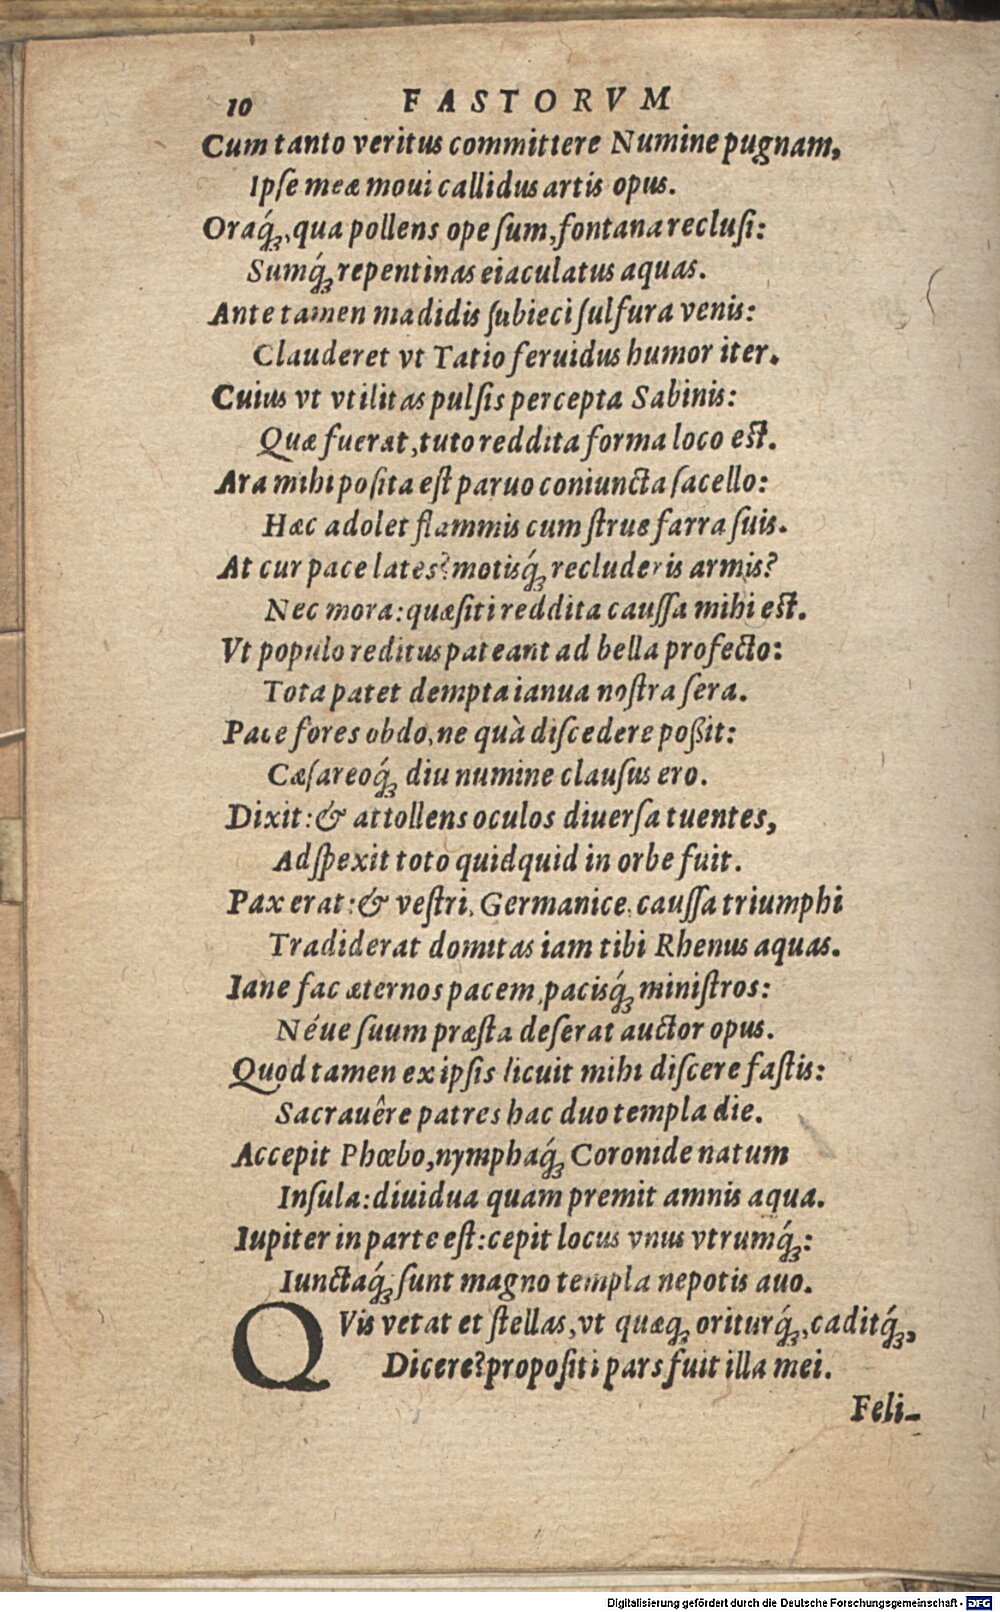 10 FASTORVM
Cum tanto veritus committere Numine pugnam,
Ipſe meæ moui callidus artis opus.
Oraq́ꝫ, qua pollens ope ſum, fontana recluſi:
Sumq́ꝫ repentinas eiaculatus aquas.
Ante tamen madidis ſubieci ſulfura venis:
Clauderet vt Tatio feruidus humor iter.
Cuius vt vtilitas pulſis percepta Sabinis:
Quæ fuerat, tuto reddita forma loco eſt.
Ara mihi poſita eſt paruo coniuncta ſacello:
Hæc adolet flammis cum ſtrue farra ſuis.
At cur pace lates? motisq́ꝫ recluderis armis?
Nec mora: quæſiti reddita cauſſa mihi eſt.
Vt populo reditus pateant ad bella profecto:
Tota patet dempta ianua noſtra ſera.
Pace fores obdo, ne quà diſcedere poßit:
Cæſareoq́ꝫ diu numine clauſus ero.
Dixit: & attollens oculos diuerſa tuentes,
Adſpexit toto quidquid in orbe fuit.
Pax erat: & veſtri, Germanice, cauſſa triumphi
Tradiderat domitas iam tibi Rhenus aquas.
Iane fac æternos pacem, pacisq́ꝫ miniſtros:
Néue ſuum præſta deſerat auctor opus.
Quod tamen ex ipſis licuit mihi diſcere faſtis:
Sacrauêre patres hac duo templa die.
Accepit Phœbo, nymphaq́ꝫ Coronide natum
Inſula: diuidua quam premit amnis aqua.
Iupiter in parte eſt: cepit locus vnus vtrumq́ꝫ:
Iunctaq́ꝫ ſunt magno templa nepotis auo.
QVis vetat et ſtellas, vt quæqꝫ oriturq́ꝫ, caditq́ꝫ,
Dicere? propoſiti pars fuit illa mei.
Feli-
Digitalisierung gefördert durch die Deutsche Forschungsgemeinschaft - DFG